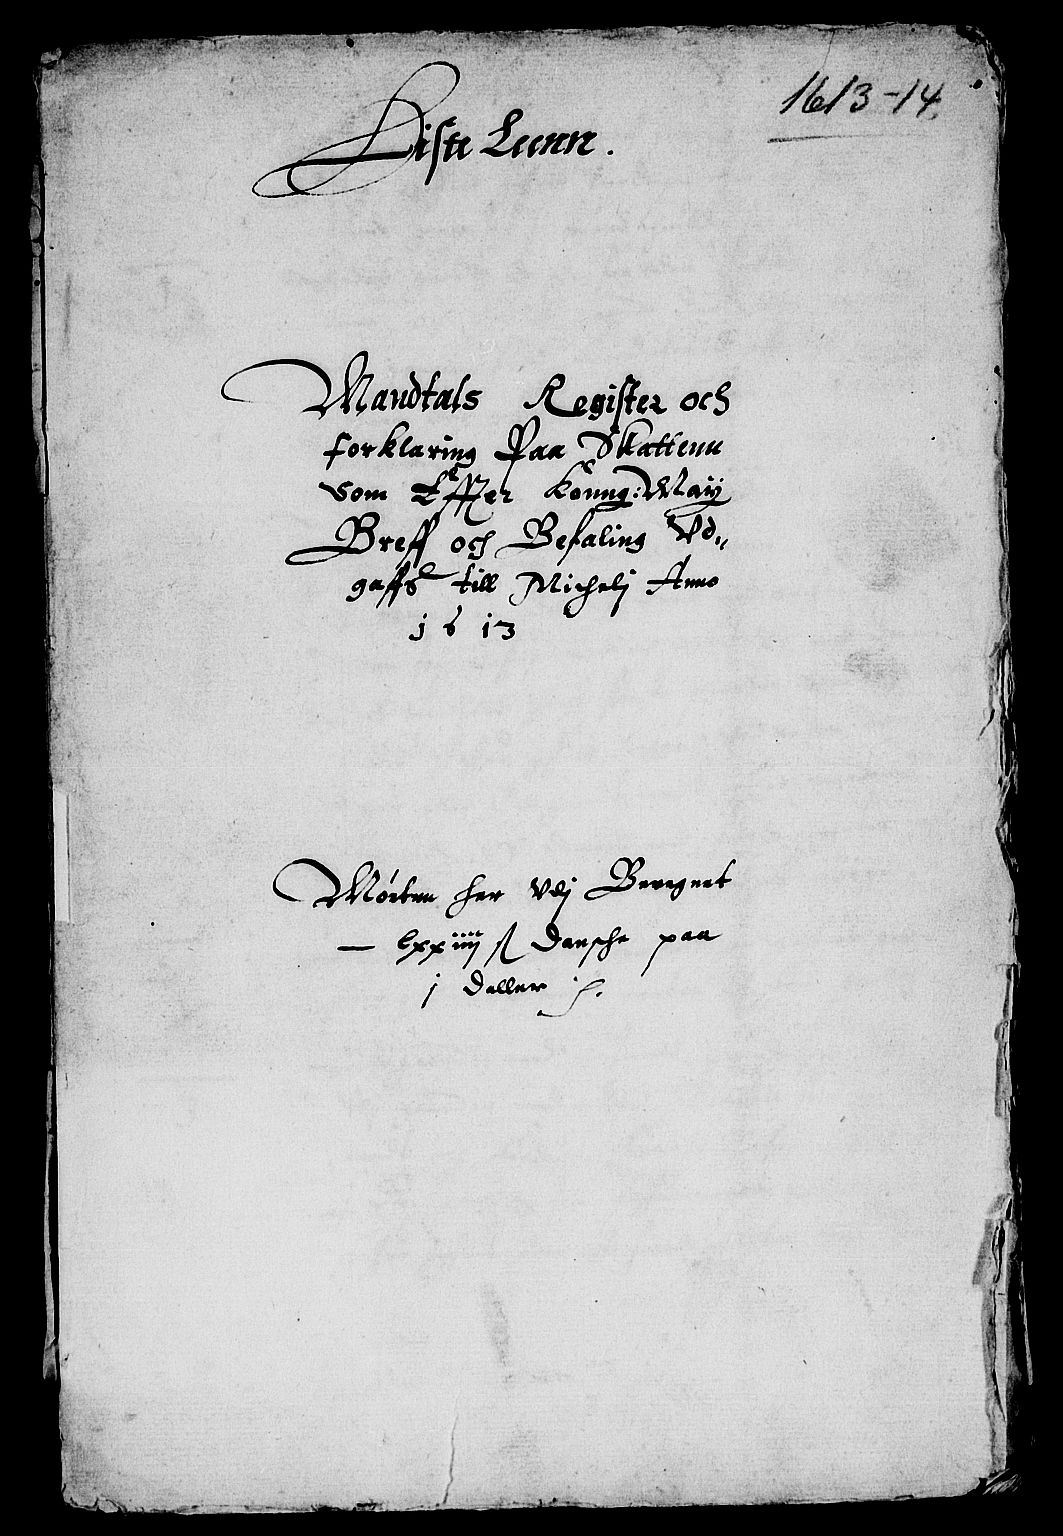 1613-14
Liste Leenn.
Mandtals Register och
forklaring Paa Skattenn
som Effter Konng: May
Breff och Befaling Vd„
gaffs till Michelj Anno
1613
Mørten her Vdj Beregnet
— lxxiiij ß Dansche paa
j Daller